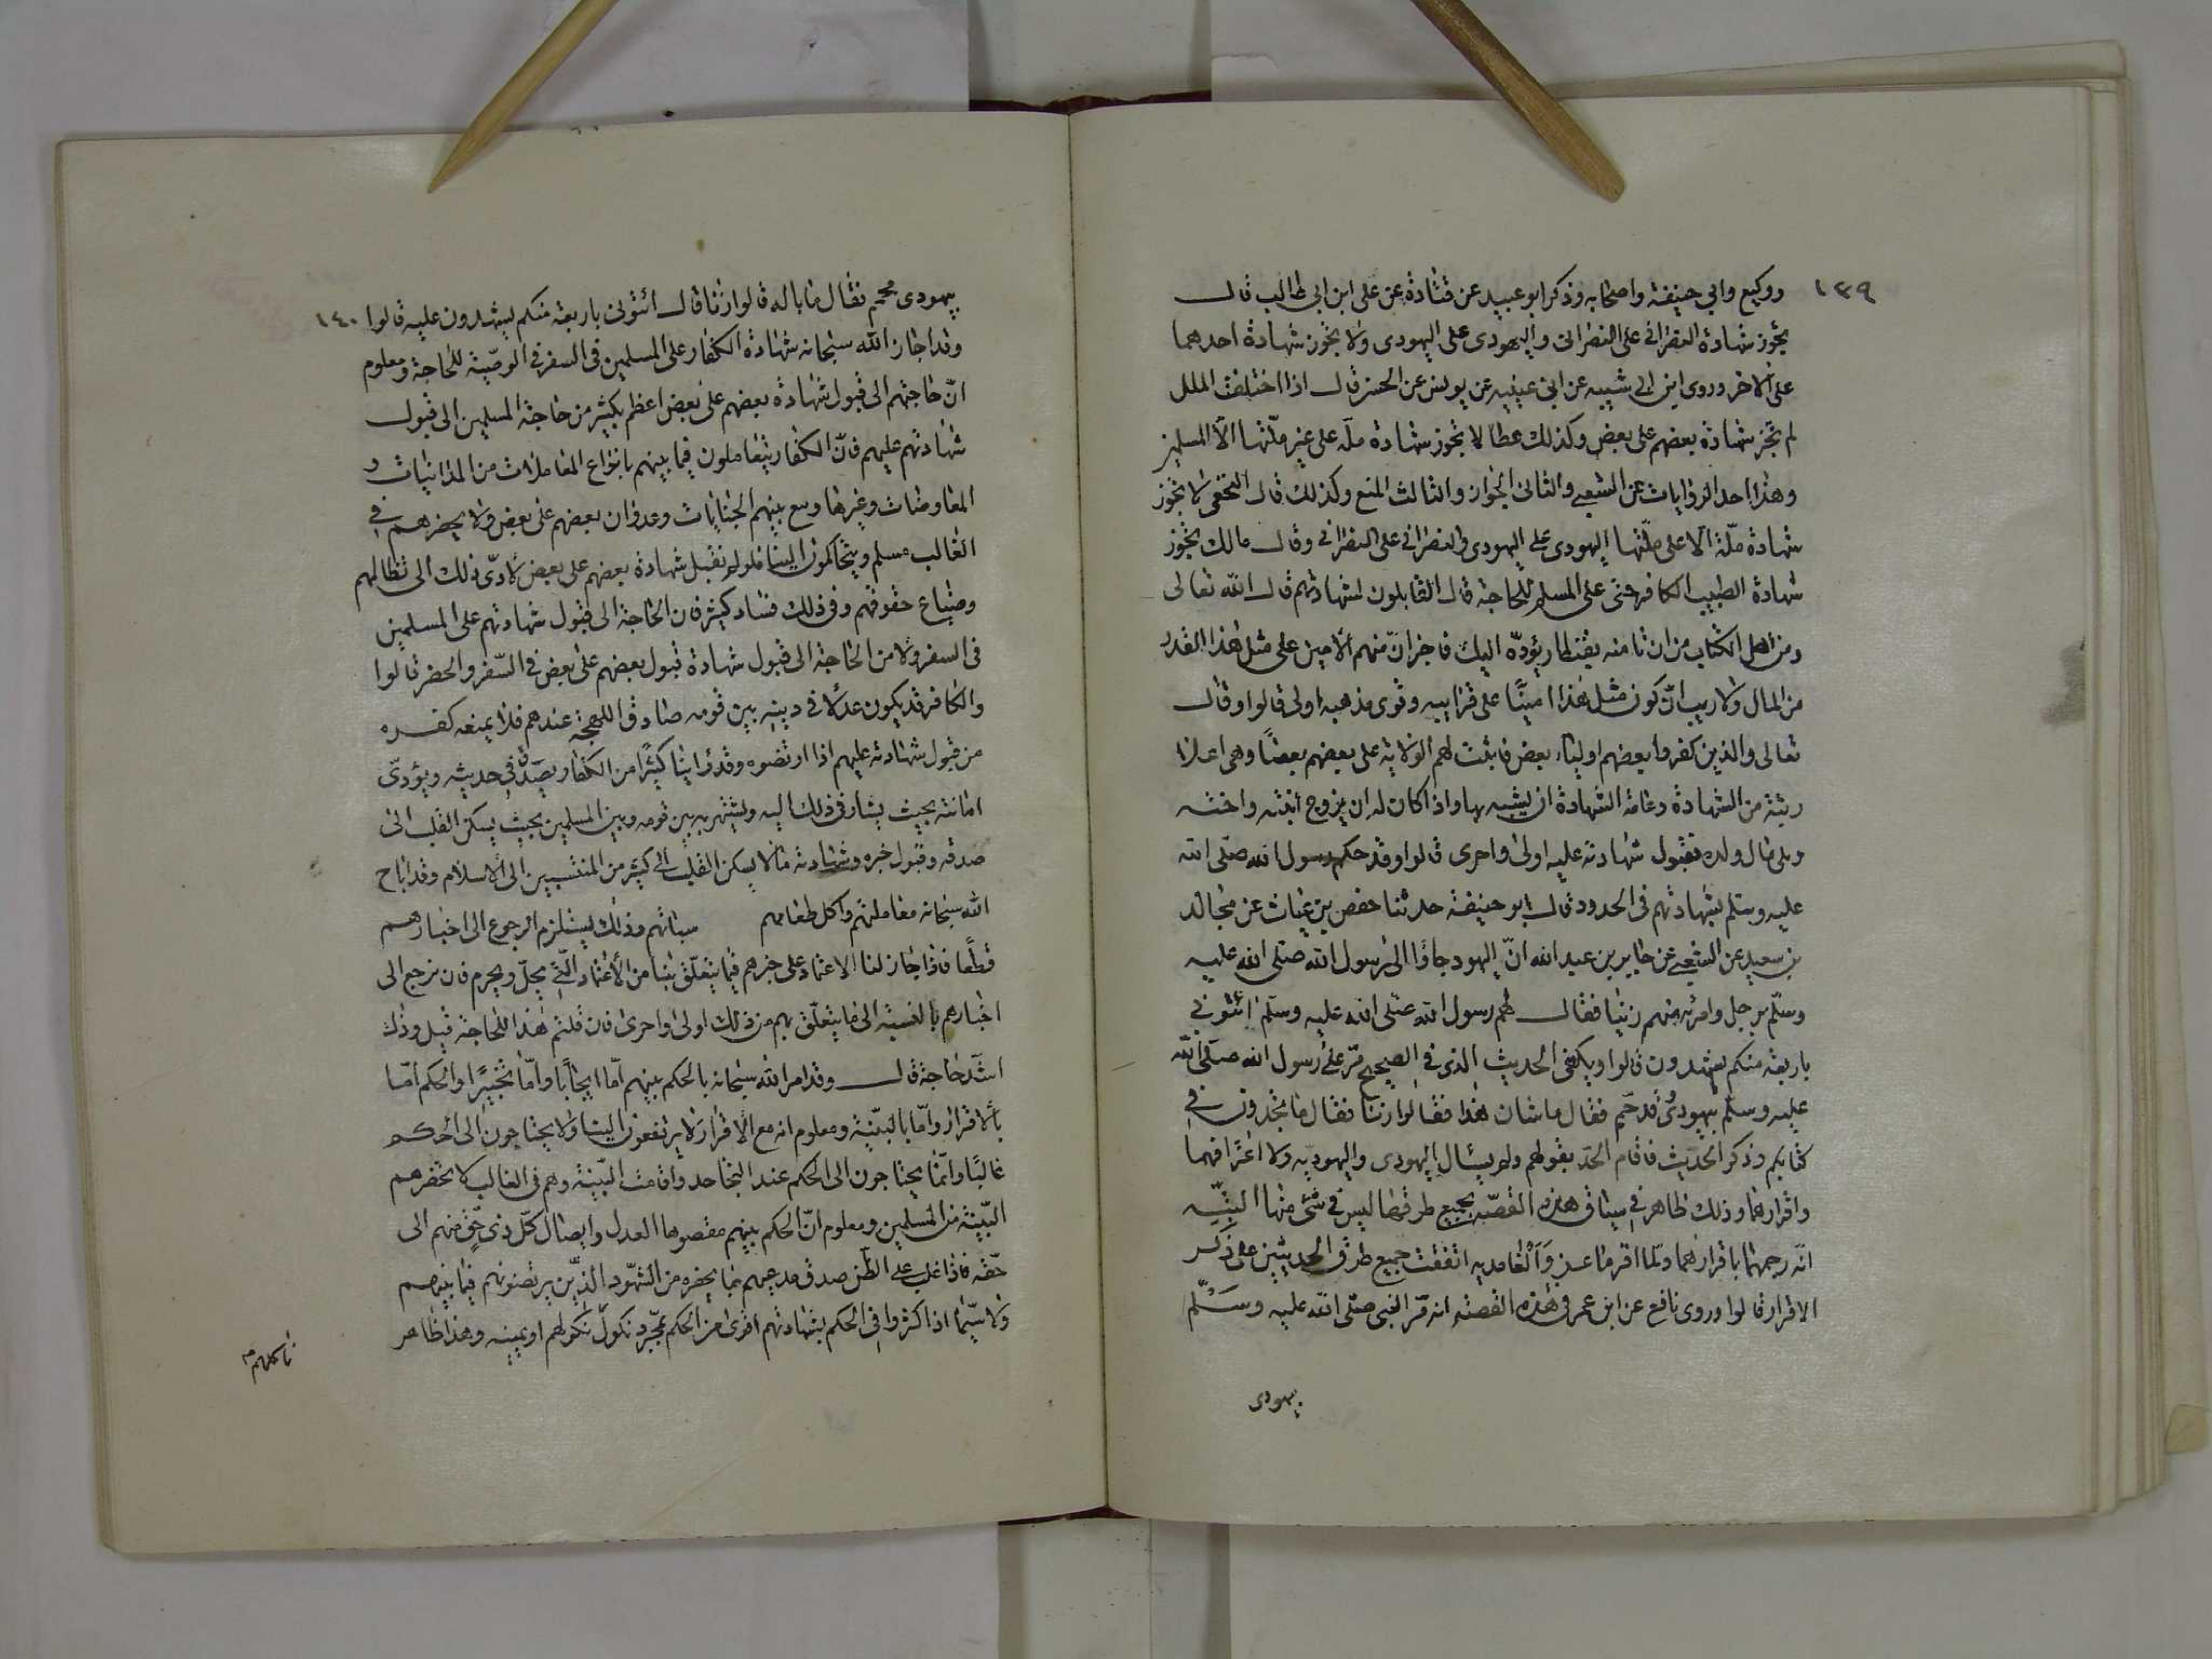 ١٣٩
ووكيع وابي حنيفة واصحابه وذكر ابو عبيد عن قتادة عن على ابن ابى طالب قال
يجوز شهادة النصرانى على النصرانى واليهودى على اليهودى ولا يجوز شهادة احدهما
على الاخر وروى ابن ابى شيبه عن ابن عيينه عن يونس عن الحسن قال اذا اختلفت الملل
لم تجز شهادة بعضهم على بعض وكذلك عطا لا تجوز شهادة ملّه على غير ملّتها الّا المسلمين
وهذا احد الروايات عن الشعبى والثانى الجواز والثالث المنع وكذلك قال النخعى لا تجوز
شهادة ملّة الّا على ملّتها اليهودى على اليهودى والنصرانى على النصرانى وقال مالك تجوز
شهادة الطبيب الكافر حتى على المسلم للحاجة قال القابلون لشهادتهم قال الله تعالى
ومن اهل الكتاب من ان تامنه بقنطار يؤدّه اليك فاخبر انّ منهم الامين على مثل هذا القدر
من المال ولا ريب انّ كون مثل هذا امينًا على قرابيبه وذوى مذهبه اولى قالوا وقال
تعالى والذين كفروا بعضهم اولياء بعض فاثبت لهم الولاية على بعضهم بعضًا وهى اعلا
رتبة من الشهادة وغاية الشهادة ان يشبه بها واذا كان له ان يزوج ابنته واخته
ويلى مال ولده فقبول شهادته عليه اولى واحرى قالوا وقد حكم رسول الله صلّى الله
عليه وسلّم بشهادتهم فى الحدود قال ابو حنيفة حدثنا حفص بن غياث عن مجالد
بن سعيد عن الشعبى عن جابر بن عبد الله انّ اليهود جاؤا الى رسول الله صلّى الله عليه
وسلّم برجل وامرئه منهم زنيا فقال لهم رسول الله صلّى الله عليه وسلّم ائتونى
باربعة منكم يشهدون قالوا ويكفى الحديث الذى فى الصحيح مرّ على رسول الله صلّى الله
عليه وسلّم بيهودىّ قد حمّم فقال ما شان هذا فقالوا زنا فقال ما تجدون فى
كتابكم وذكر الحديث فاقام الحدّ بقولهم ولم يسئال اليهودى واليهوديه ولا اعترافهما
واقرارهما وذلك ظاهر فى سياق هذه القصّة بجميع طرقها ليس فى شئ منها البتّه
انّه رجمهما باقرارهما ولمّا اقر ماعز والغامديه اتفقت جميع طرق الحديثين على ذكر
الاقرار قالوا وروى نافع عن ابن عمر فى هذه القصّة انه مرّ النبى صلّى الله عليه وسلّم
يهودى
١٤٠
بيهودى محمم فقال ما باله قالوا زنا قال ائتونى باربعة منكم يشهدون عليه قالوا
وقد اجاز الله سبحانه شهادة الكفار على المسلمين فى السفر فى الوصّية للحاجة ومعلوم
انّ حاجتهم الى قبول شهادة بعضهم على بعض اعظم بكثير من حاجة المسلمين الى قبول
شهادتهم عليهم فانّ الكفار يتعاملون فيما بينهم بانواع المعاملات من المداينات و
المعاوضات وغيرها ويقع بينهم الجنايات وعدوان بعضهم على بعض ولا يحضرهم فى
الغالب مسلم ويتحاكمون الينا فلو لم تقبل شهادة بعضهم على بعض لأدّى ذلك الى تظالمهم
وضياع حقوقهم وفى ذلك فساد كثير فان الحاجة الى قبول شهادتهم على المسلمين
فى السفر ولا من الحاجة الى قبول شهادة قبول بعضهم على بعض فى السّفر والحضر قالوا
والكافر قد يكون عدلًا فى دينه بين قومه صادق اللهجة عندهم فلا يمنعه كفره
من قبول شهادته عليهم اذا ارتضوه وقد راينا كثيرًا من الكفار يصدق فى حديثه ويؤدّى
امانته بحيث يشار فى ذلك اليه ويشتهر به بين قومه وبين المسلمين بحيث يسكن القلب الى
صدقه وقبول خبره وشهادته ما لا يسكن القلب الى كثير من المنتسبين الى الاسلام وقد اباح
الله سبحانه معاملتهم واكل طعامهم سبائهم وذلك يستلزم الرجوع الى اخبارهم
قطعًا فاذا جاز لنا الاعتماد على خبرهم فيما يتعلّق بنا من الأعتماد الّتى يحلّ ويحرم فان نرجع الى
اخبارهم بالنسبة الى ما يتعلّق بهم من ذلك اولى واحرى فان قلتم هذا للحاجة قيل وذلك
اشدّ حاجة قال وقد امر الله سبحانه بالحكم بينهم امّا ايجابًا وامّا تخييرًا والحكم امّا
بالاقرار وامّا بالبيّنة ومعلوم انه مع الاقرار لا يرتفعون الينا ولا يحتاجون الى الحكم
غالبًا وانّما يحتاجون الى الحكم عند التجاحد واقامت البيّنة وهم فى الغالب لا تحضرهم
البيّنة من المسلمين ومعلوم انّ الحكم بينهم مقصوها العدل وايصال كلّ ذى حقّ منهم الى
حقّه فاذا غلب على الظّن صدق مدعيهم بما يحضره من الشهود الذين يرتضونهم فيما بينهم
ولا سيّما اذا كثروا فى الحكم بشهادتهم اقوى من الحكم بمجرد نكول نكولهم او يمينه وهذا ظاهر